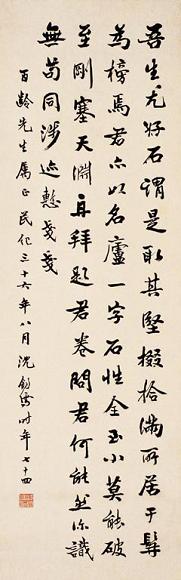 吾生尤好石謂是取其堅掇拾滿所居于髯
為榜焉君亦以名廬一字石性全至小莫能破
至剛塞天淵再拜題君卷問君何能然亦識
無苟同涉迹慙戔戔
百齡先生屬正民紀三十六年八月沈鈞儒時年七十四